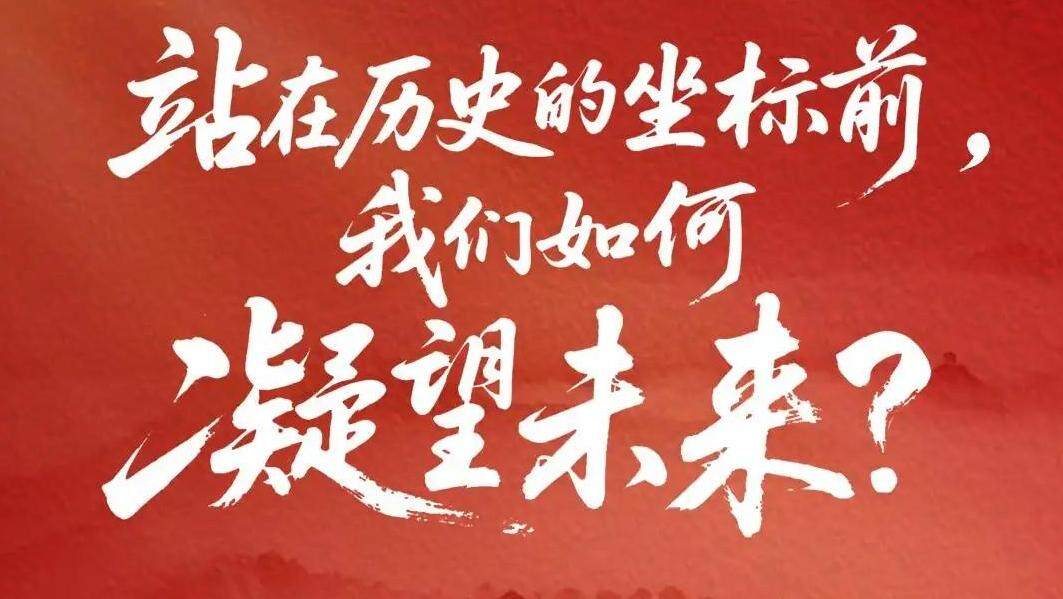 站在历史的坐标前，
我们如何
凝望未来？